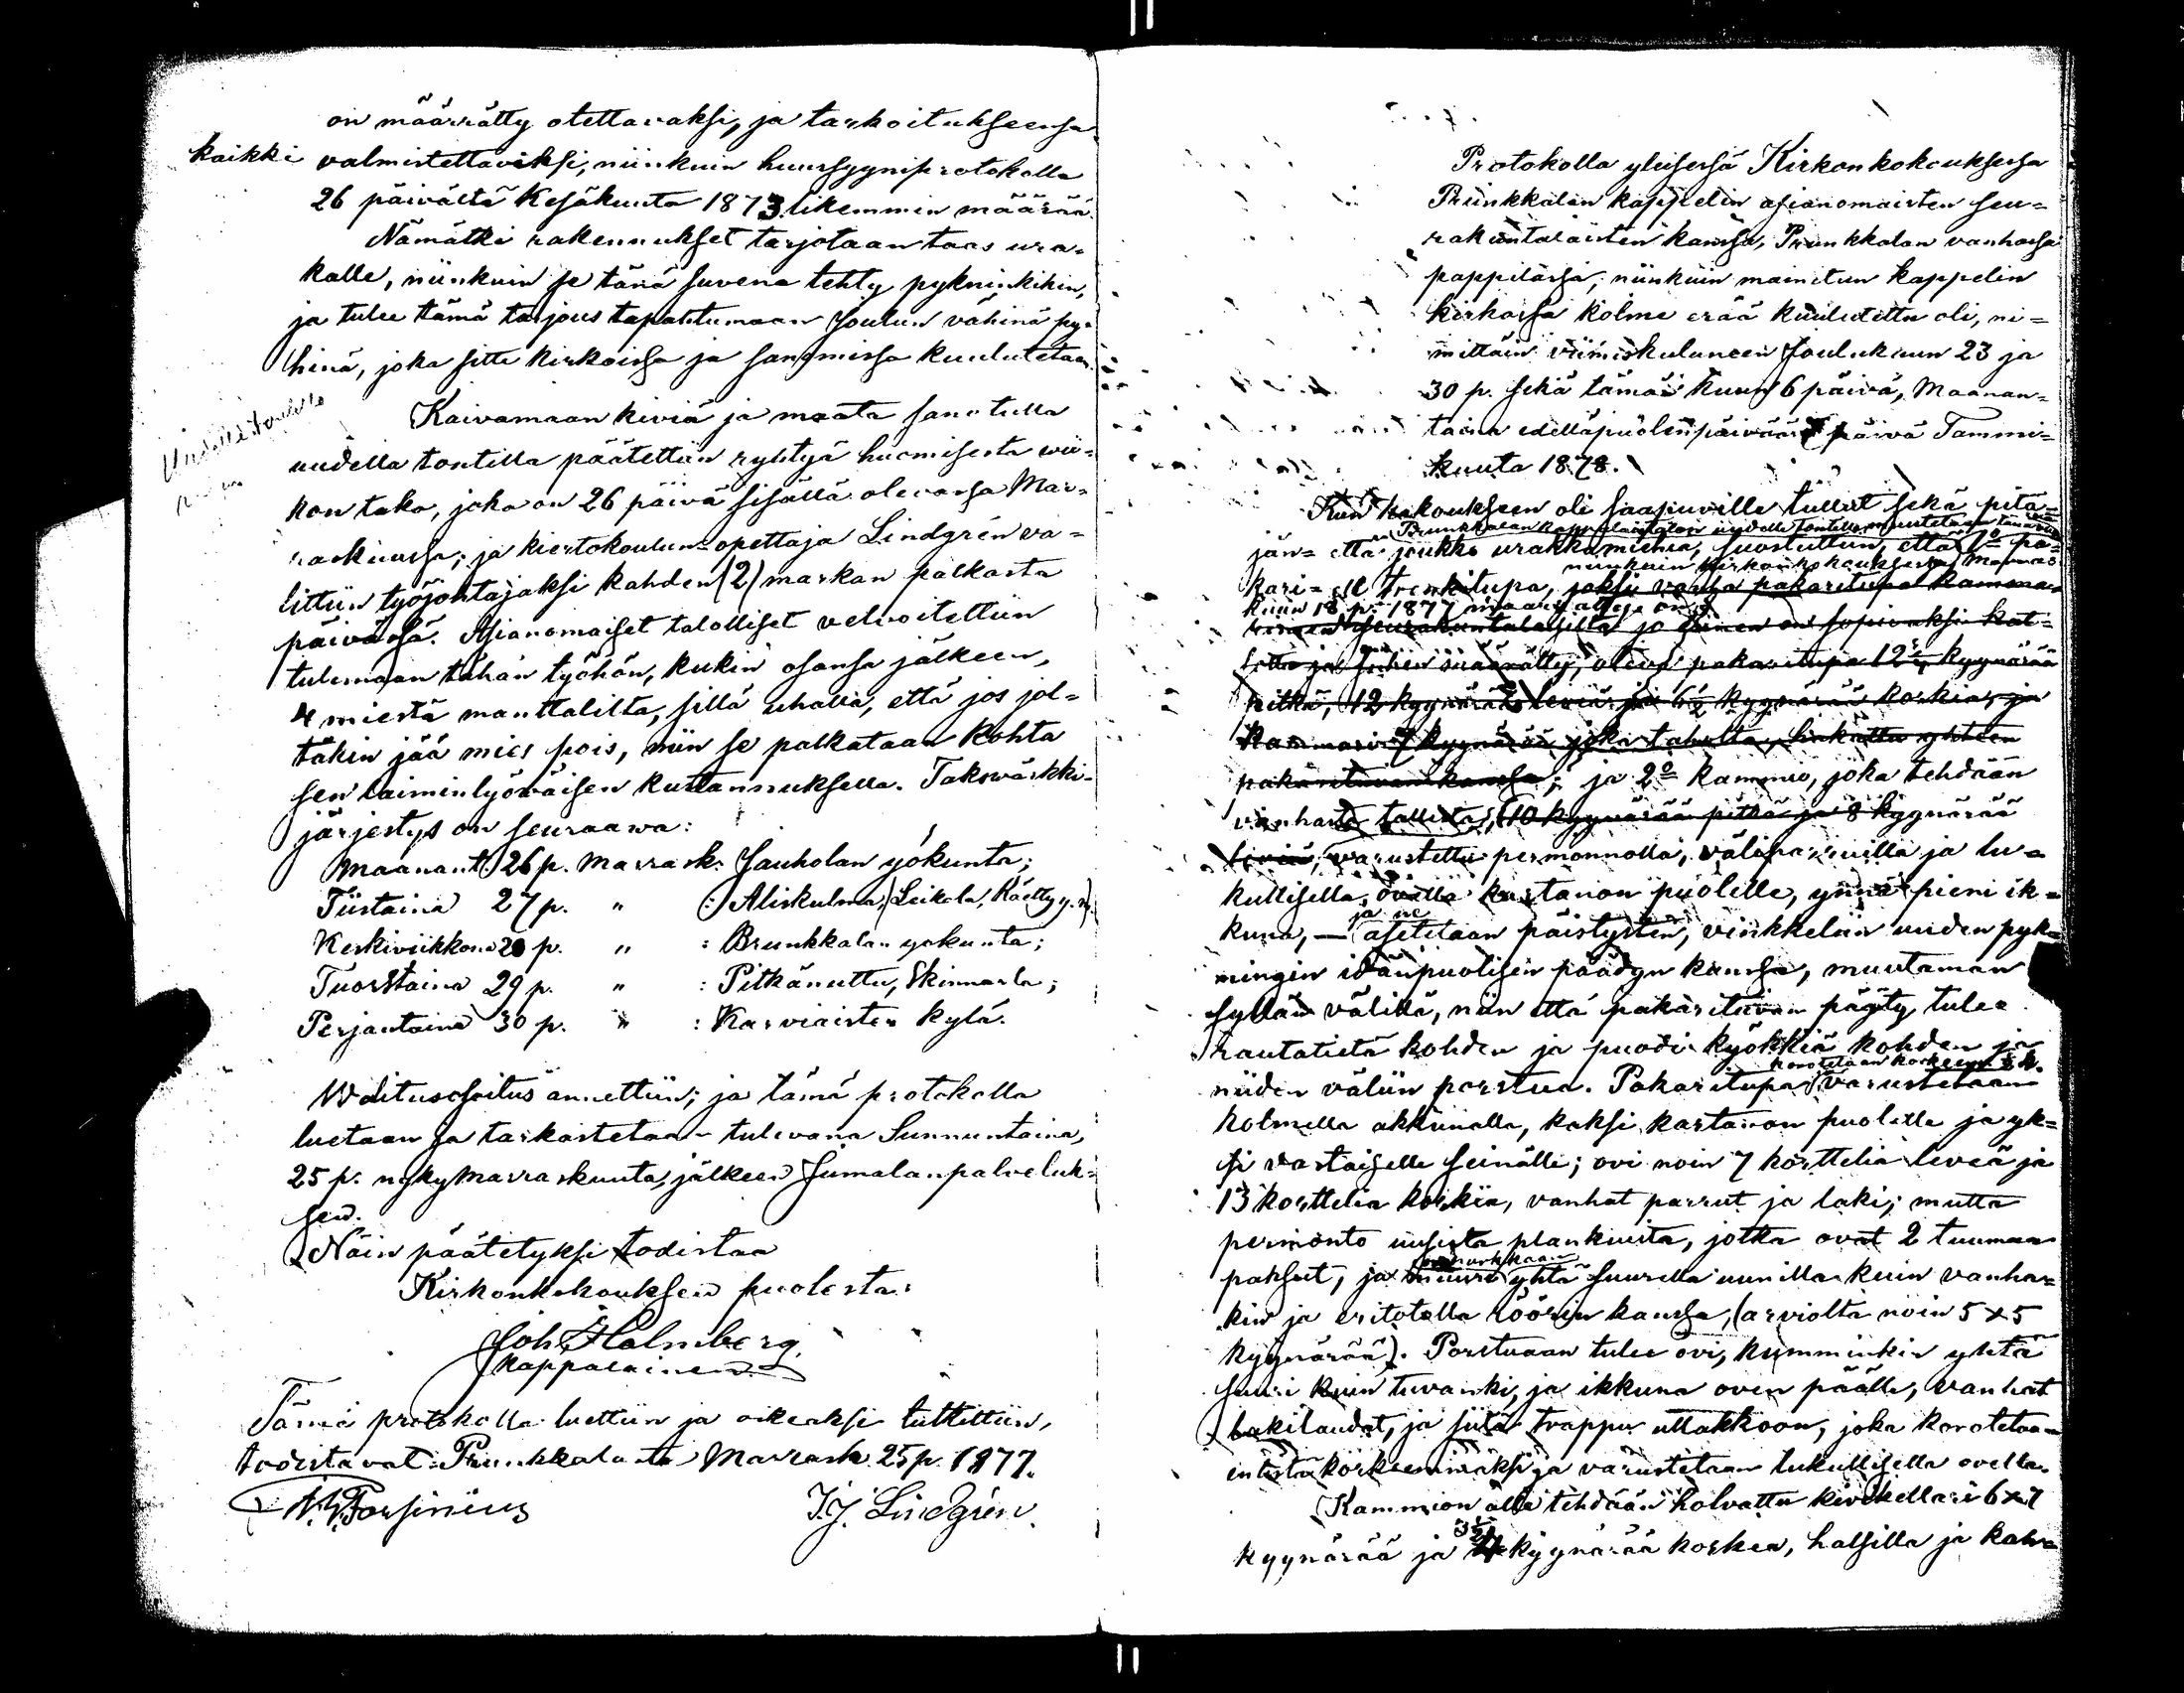 on määrrätty otettavaksi, ja tarkoitukseensa
kaikki valmistettaviksi, niinkuin huussyyniprotokolla
26 päivältä Kesäkuuta 1873 likemmin määrää.
Nämätki rakennukset tarjotaan taas ura-
kalle, niinkuin se tänä suvena tehty pykninkikin,
ja tulee tämä tarjous tapahtumaan Joulun vähinä py-
hinä, joka sitte kirkoissa ja sanomissa kuulutetaan.
Uudelle tontille
Kaivamaan kiviä ja maata sanotulla
uudella tontilla päätettiin ryhtyä huomisesta wii-
kon taka, joka on 26 päivä sisällä olevassa Mar-
raskuussa; ja kiertokoulun-opettaja Lindgrén va-
littiin työjohtajaksi kahden (2) markan palkasta
päivässä. Asianomaiset talolliset velvoitettiin
tulemaan tähän työhön, kukin osansa jälkeen,
4 miestä manttalilta, sillä uhalla, että jos jol-
takin jää mies pois, niin se palkataan kohta
sen laiminlyöväisen kustannuksella. Takswärkki-
järjestys on seuraawa:
Maanant. 26 p. Marrask. Sauholan yökunta;
Tiistaina 27 p. " : Aliskulma, (Leikola, Räetty y.m.)
Keskiviikkona 28 p. " : Brunkkalan yökunta;
Tuorstaina 29 p. " : Pitkänuttu, Skinnarla;
Perjantaina 30 p. " : Karviaisten kylä.
Walitusosoitus annettiin; ja tämä protokolla
luetaan ja tarkastetaan tulevana Sunnuntaina,
25 p. nyky Marraskuuta, jälkeen Jumalanpalveluk-
sen.
Näin päätetyksi todistaa
Kirkonkokouksen puolesta:
Joh. Holmberg
Kappalainen.
Tämä protokolla luettiin ja oikeaksi tuttittiin,
todistavat: Prunkkalasta Marrask. 25 p. 1877.
Forsinius J. J. Lindgrén.
Protokolla yleisessä Kirkonkokouksessa
Prunkkalan kappelin asianomaisten seu-
rakuntalaisten kanssa, Prunkkalan vanhassa
pappilassa; niinkuin mainitun kappelin
kirkossa kolme erää kuulutettu oli, ni-
mittäin viimiskuluneen Joulukuun 23 ja
30 p. sekä tämän kuun 6 päivä, Maanan-
taina edelläpuolenpäivään 7 päivä Tammi-
kuuta 1878.
Kun kokoukseen oli saapuville tullut sekä pitä-
Brunkkalan kappalaistalon uudelle tontille muutetaan
jän- että joukko urakkamiehiä, suostuttiin, että 1o pa-
niinkuin kirkonkokouksessa Marras
kari- eli trenkitupa, joksi vanha pakaritupa
kuun 18 p. 1877 määrätty on
seurakuntalaisilta jo ennen on sopivaksi kat-
sottu ja siihen määrätty, oleva pakaritupa 12 kyynärää
pitkä, 12 kyynärää leviä ja 6½ kyynärää korkia, ja
kammari 7 kyynärää joka taholta, hakattu yhteen
pakarituvan kanssa; ja 2o kammio, joka tehdään
vanhasta tallista, 10 kyynärää pitkä ja 8 kyynärää
leviä, varustettu permonnolla, välipa ja lu-
kullisella ovella kartanon puolelle, ynnä pieni ik-
ja ne
kuna, — asetetaan päistysten, vinkkeliin uuden pyk-
ningin idänpuolisen päädyn kanssa, muutaman
syllän välillä, niin että pakarituvan pääty tulee
rautatietä kohden ja puodi kyökkiä kohden ja
korotetaan korkeem
niiden väliin porstua. Pakaritupa varustetaan
kolmella akkunalla, kaksi kartanon puolella ja yk-
si vastaiselle seinälle; ovi noin 7 korttelia leveä ja
13 korttelia korkia, vanhat parrut ja laki; mutta
permonto uusista plankuista, jotka ovat 2 tuumaa
nurkkaan
paksut, ja muuri yhtä suurella uunilla kuin vanha-
kin ja eritotella röörin kanssa, (arviolta noin 5 x 5
kyynärää). Porstuaan tulee ovi, kumminkin yhtä
suuri kuin tuvanki, ja ikkuna oven päälle, vanhat
lakilaudat, ja siitä trappu ullakkoon, joka korotetaan
entistä korkeemmaksi ja varustetaan lukullisella ovella.
Kammion alle tehdään holvattu kivikellari 6 x 7
3½
kyynärää ja kyynärää korkea, halsilla ja kah-